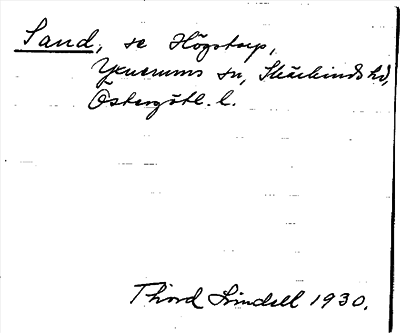 Sand, se Högstorp,
Yxnerums sn, Skärkinds hd,
Östergötl. l.
Thord Lindell 1930.